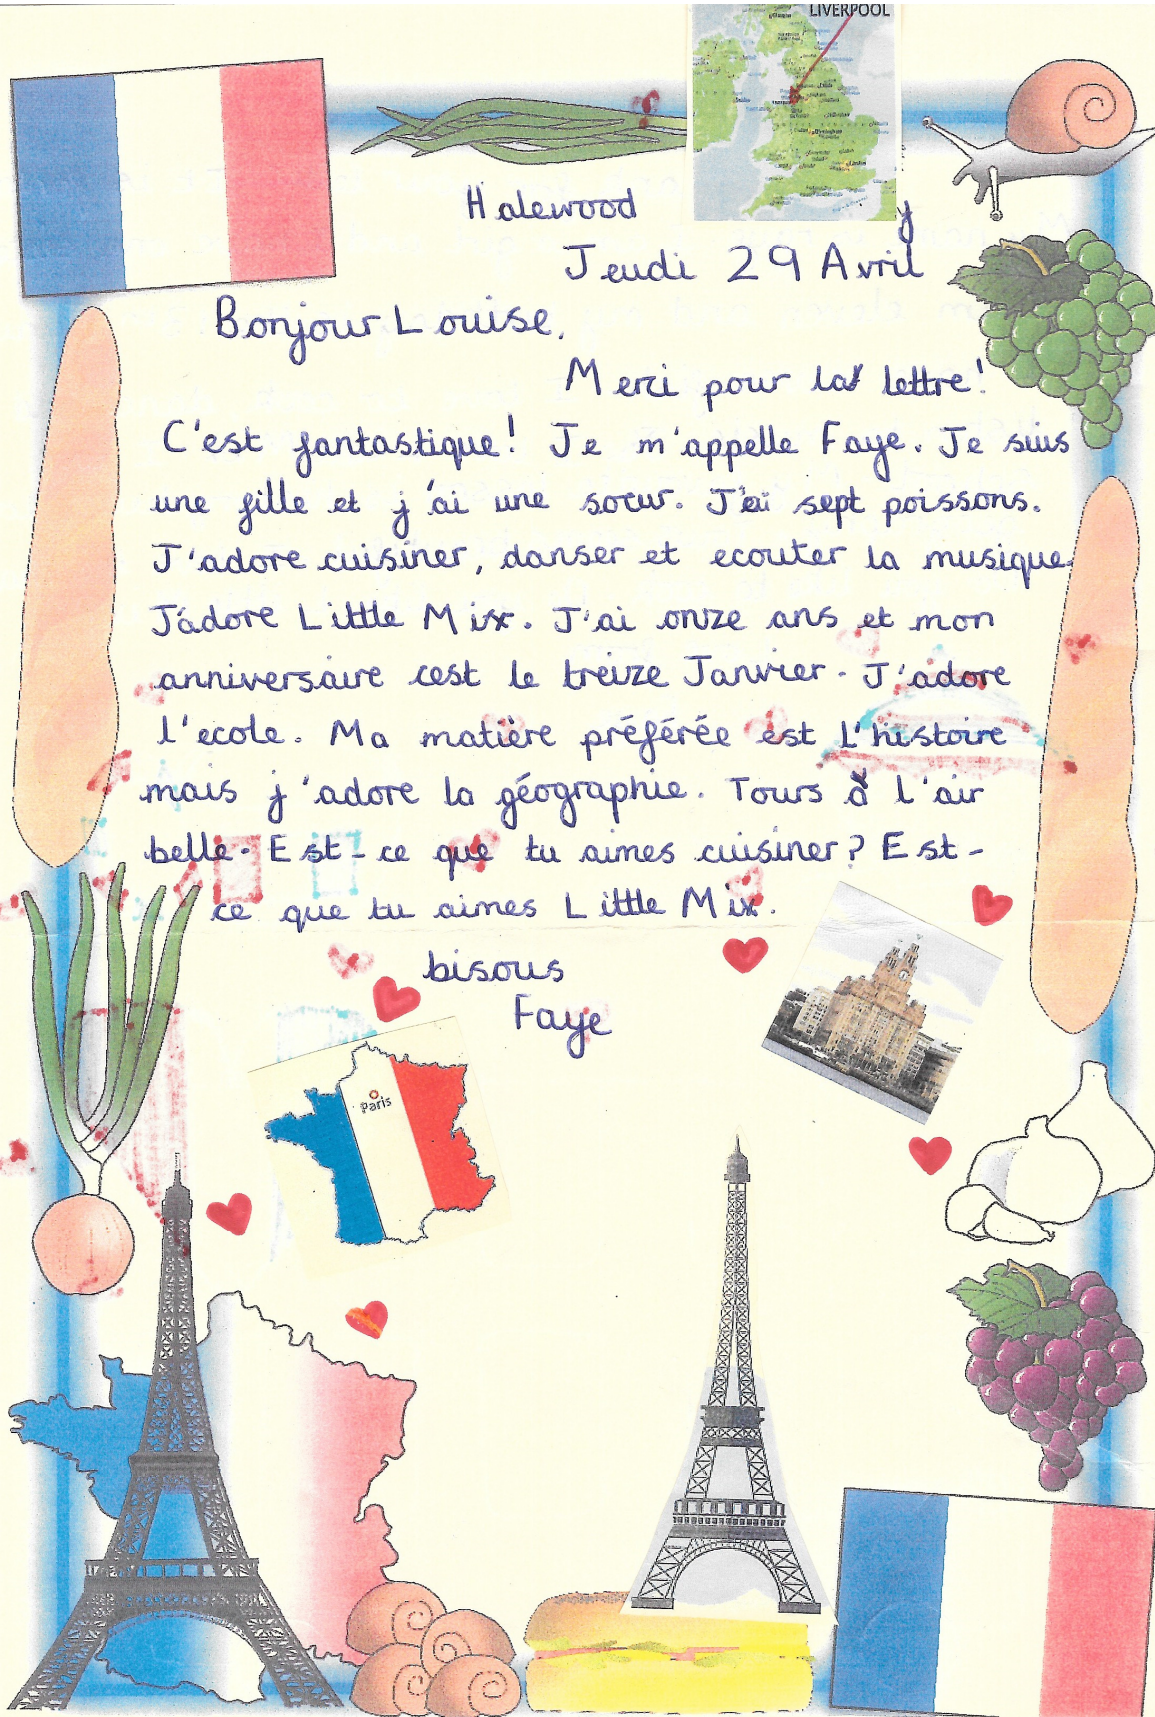 LIVERPOOL
Halewood
Jeudi 29 Avril
Bonjour Louise,
Merci pour la lettre!
C'est fantastique! Je m'appelle Faye. Je suis
une fille et j'ai une soeur. J'ai sept poissons.
J'adore cuisiner, danser et ecouter la musique.
J'adore Little Mix. J'ai onze ans et mon
anniversaire cest le treize Janvier. J'adore
l'ecole. Ma matière préférée est l'histoire
mais j'adore la géographie. Tours à l'air
belle. Est-ce que tu aimes cuisiner? Est-
ce que tu aimes Little Mix.
bisous
Faye
Paris